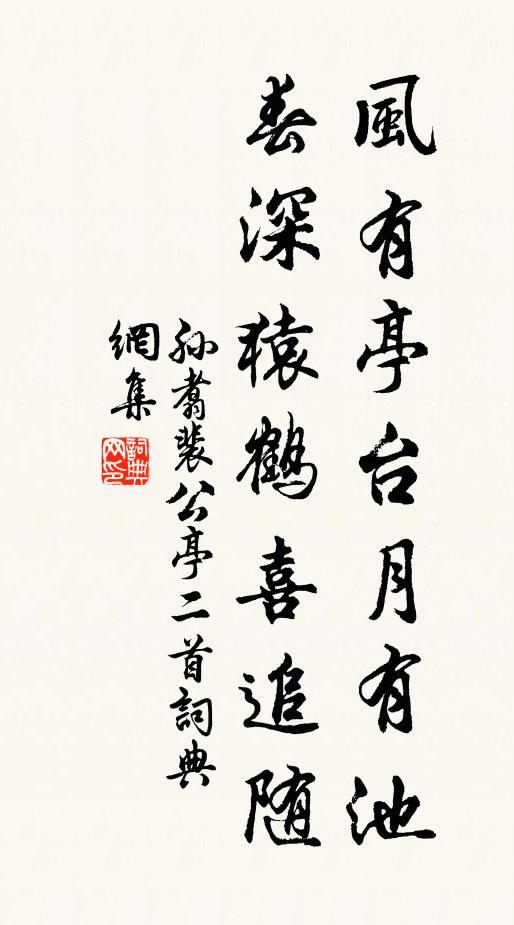 風有亭台月有池
春深猿鶴喜追随
孙翥裴公亭二首詞典
網集
詞典
网印